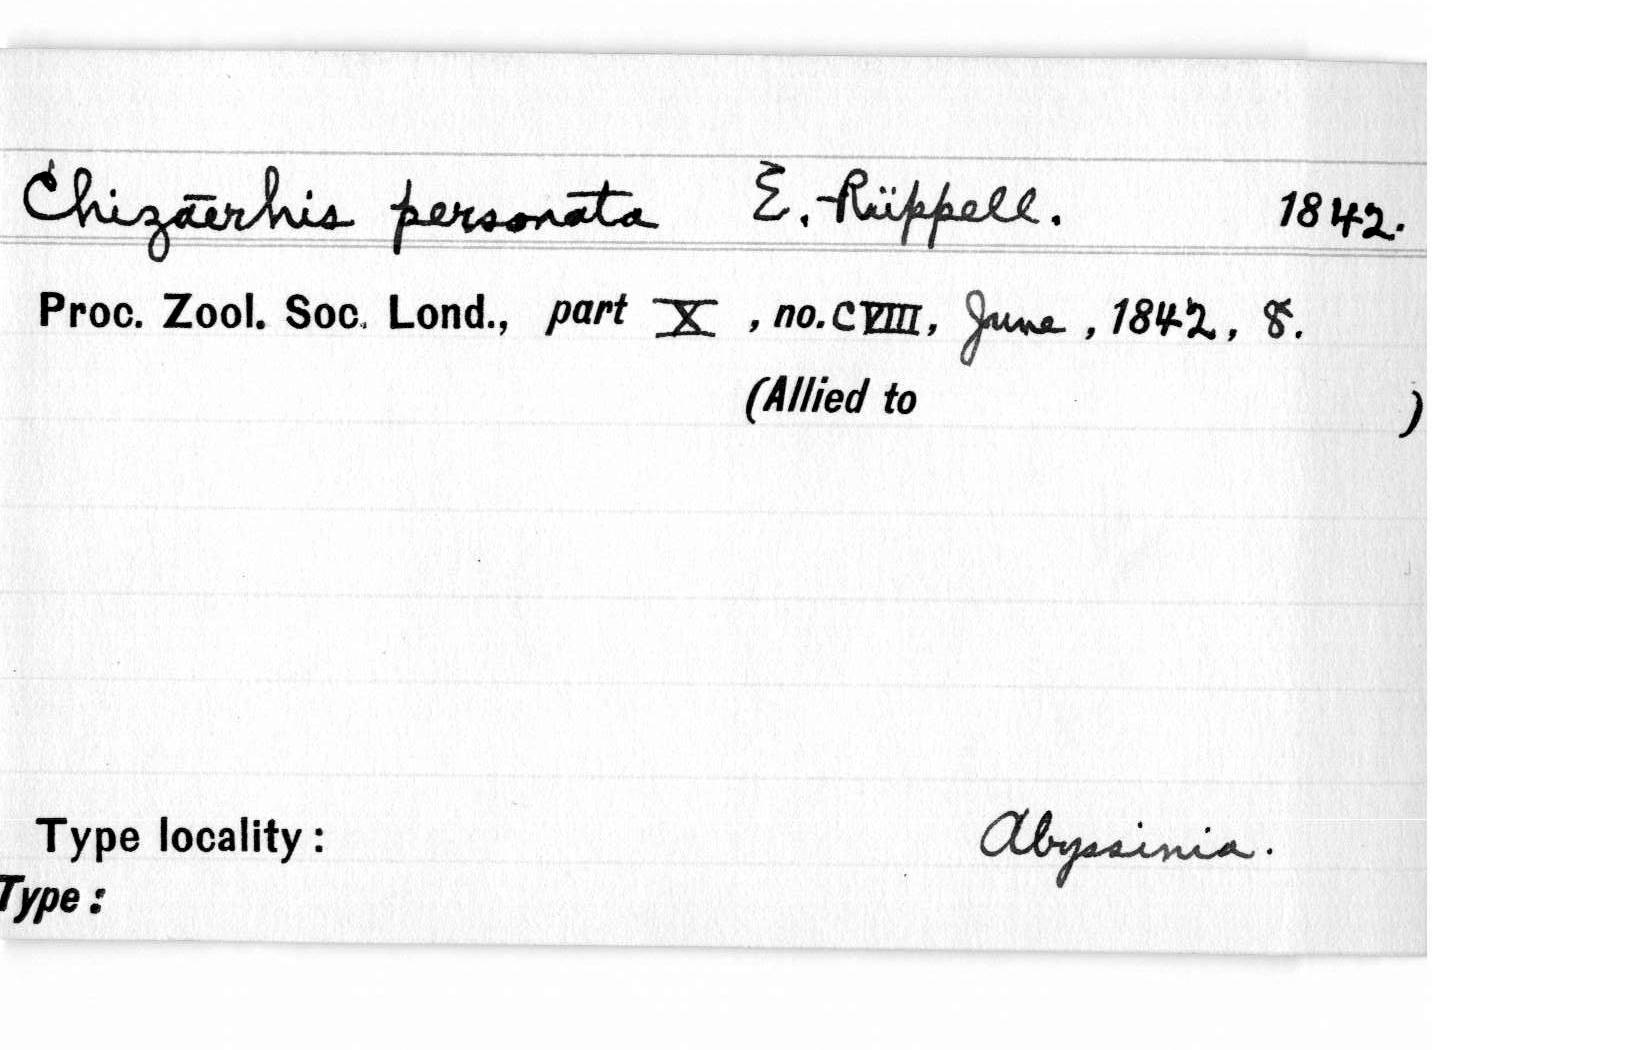 Chizāerhis personāta E. Rüppell. 1842.
Proc. Zool. Soc. Lond., part X, no. CVIII, June, 1842, 8.
(Allied to )
Type locality: Abyssinia.
Type: